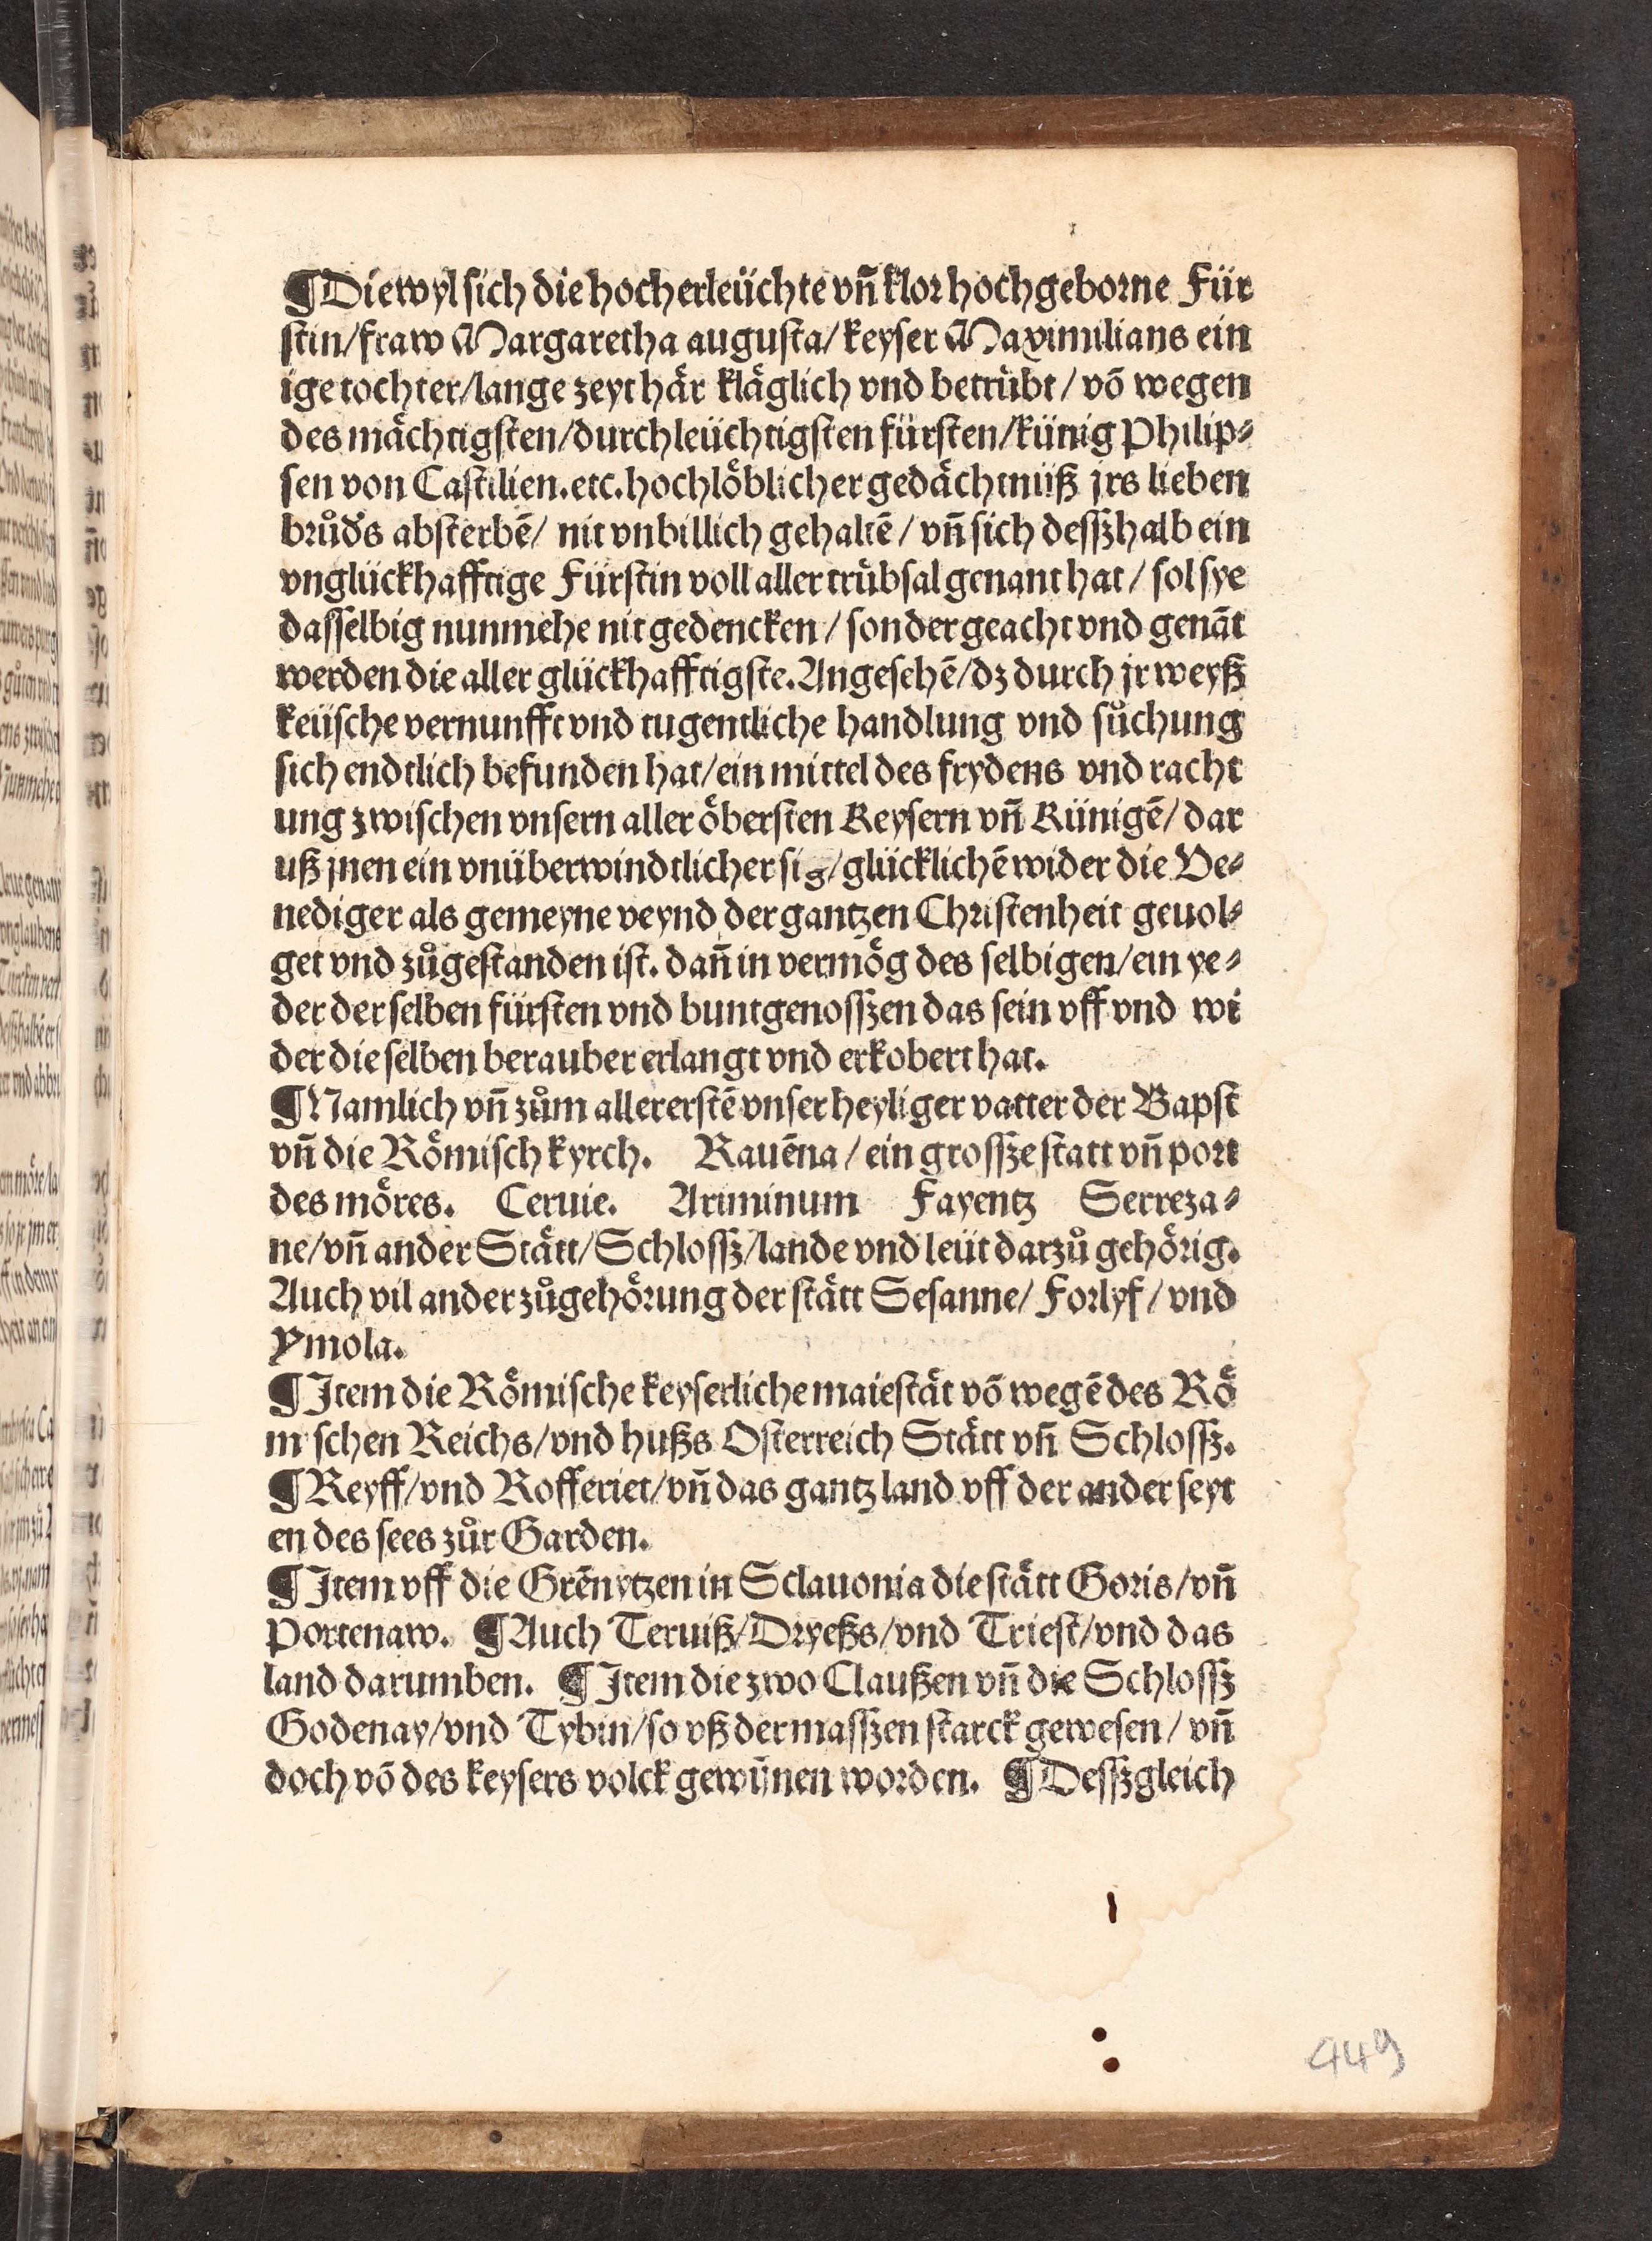 ¶Diewyl sich die hocherleüchte vñ klor hochgeborne Für
stin/fraw Margaretha augusta/keyser Maximilians ein
ige tochter/lange zeyt här kläglich vnd betrübt/võ wegen
des mächtigsten/durchleüchtigsten fürsten/künig Philip⸗
sen von Castilien.etc.hochlöblicher gedächtnüß jrs lieben
brůďs absterbẽ/ nit vnbillich gehaltẽ/vñ sich desßhalb ein
vnglückhafftige Fürstin voll aller trübsal genant hat/ sol sye
dasselbig nunmehe nit gedencken/sonder geacht vnd genãt
werden die aller glückhafftigste. Angesehẽ/dz durch jr weyß
keüsche vernunfft vnd tugentliche handlung vnd sůchung
sich endtlich befunden hat/ein mittel des frydens vnd racht
ung zwischen vnsern aller öbersten Keysern vñ Künigẽ/dar
uß jnen ein vnüberwindtlicher sig/glücklichẽ wider die Ve⸗
nediger als gemeyne veynd der gantzen Christenheit geuol⸗
get vnd zůgestanden ist. dañ in vermög des selbigen/ein ye⸗
der der selben fürsten vnd buntgenosßen das sein vff vnd wi
der die selben berauber erlangt vnd erkobert hat.
¶Namlich vñ zům allererstẽ vnser heyliger vatter der Bapst
vñ die Römisch kyrch. Rauẽna/ein grosße statt vñ port
des möres. Ceruie. Ariminum Fayentz Serreza⸗
ne/vñ ander Stätt/Schlosß/lande vnd leüt darzů gehörig.
Auch vil ander zůgehörung der stätt Sesanne/ Forlyf/vnd
Ymola.
¶Item die Römische keyserliche maiestät võ wegẽ des Rö
mischen Reichs/vnd hußs Osterreich Stätt vñ Schlosß.
¶Reyff/vnd Rofferiet/vñ das gantz land vff der ander seyt
en des sees zůr Garden.
¶Item vff die Grẽnytzen in Sclauonia die stätt Goris/vñ
Portenaw. ¶Auch Teruiß/Dryeßs/vnd Triest/vnd das
land darumben. ¶Item die zwo Claußen vñ die Schlosß
Godenay/vnd Tybin/so vß dermasßen starck gewesen/ vñ
doch võ des keysers volck gewũnen worden. ¶Desßgleich
449